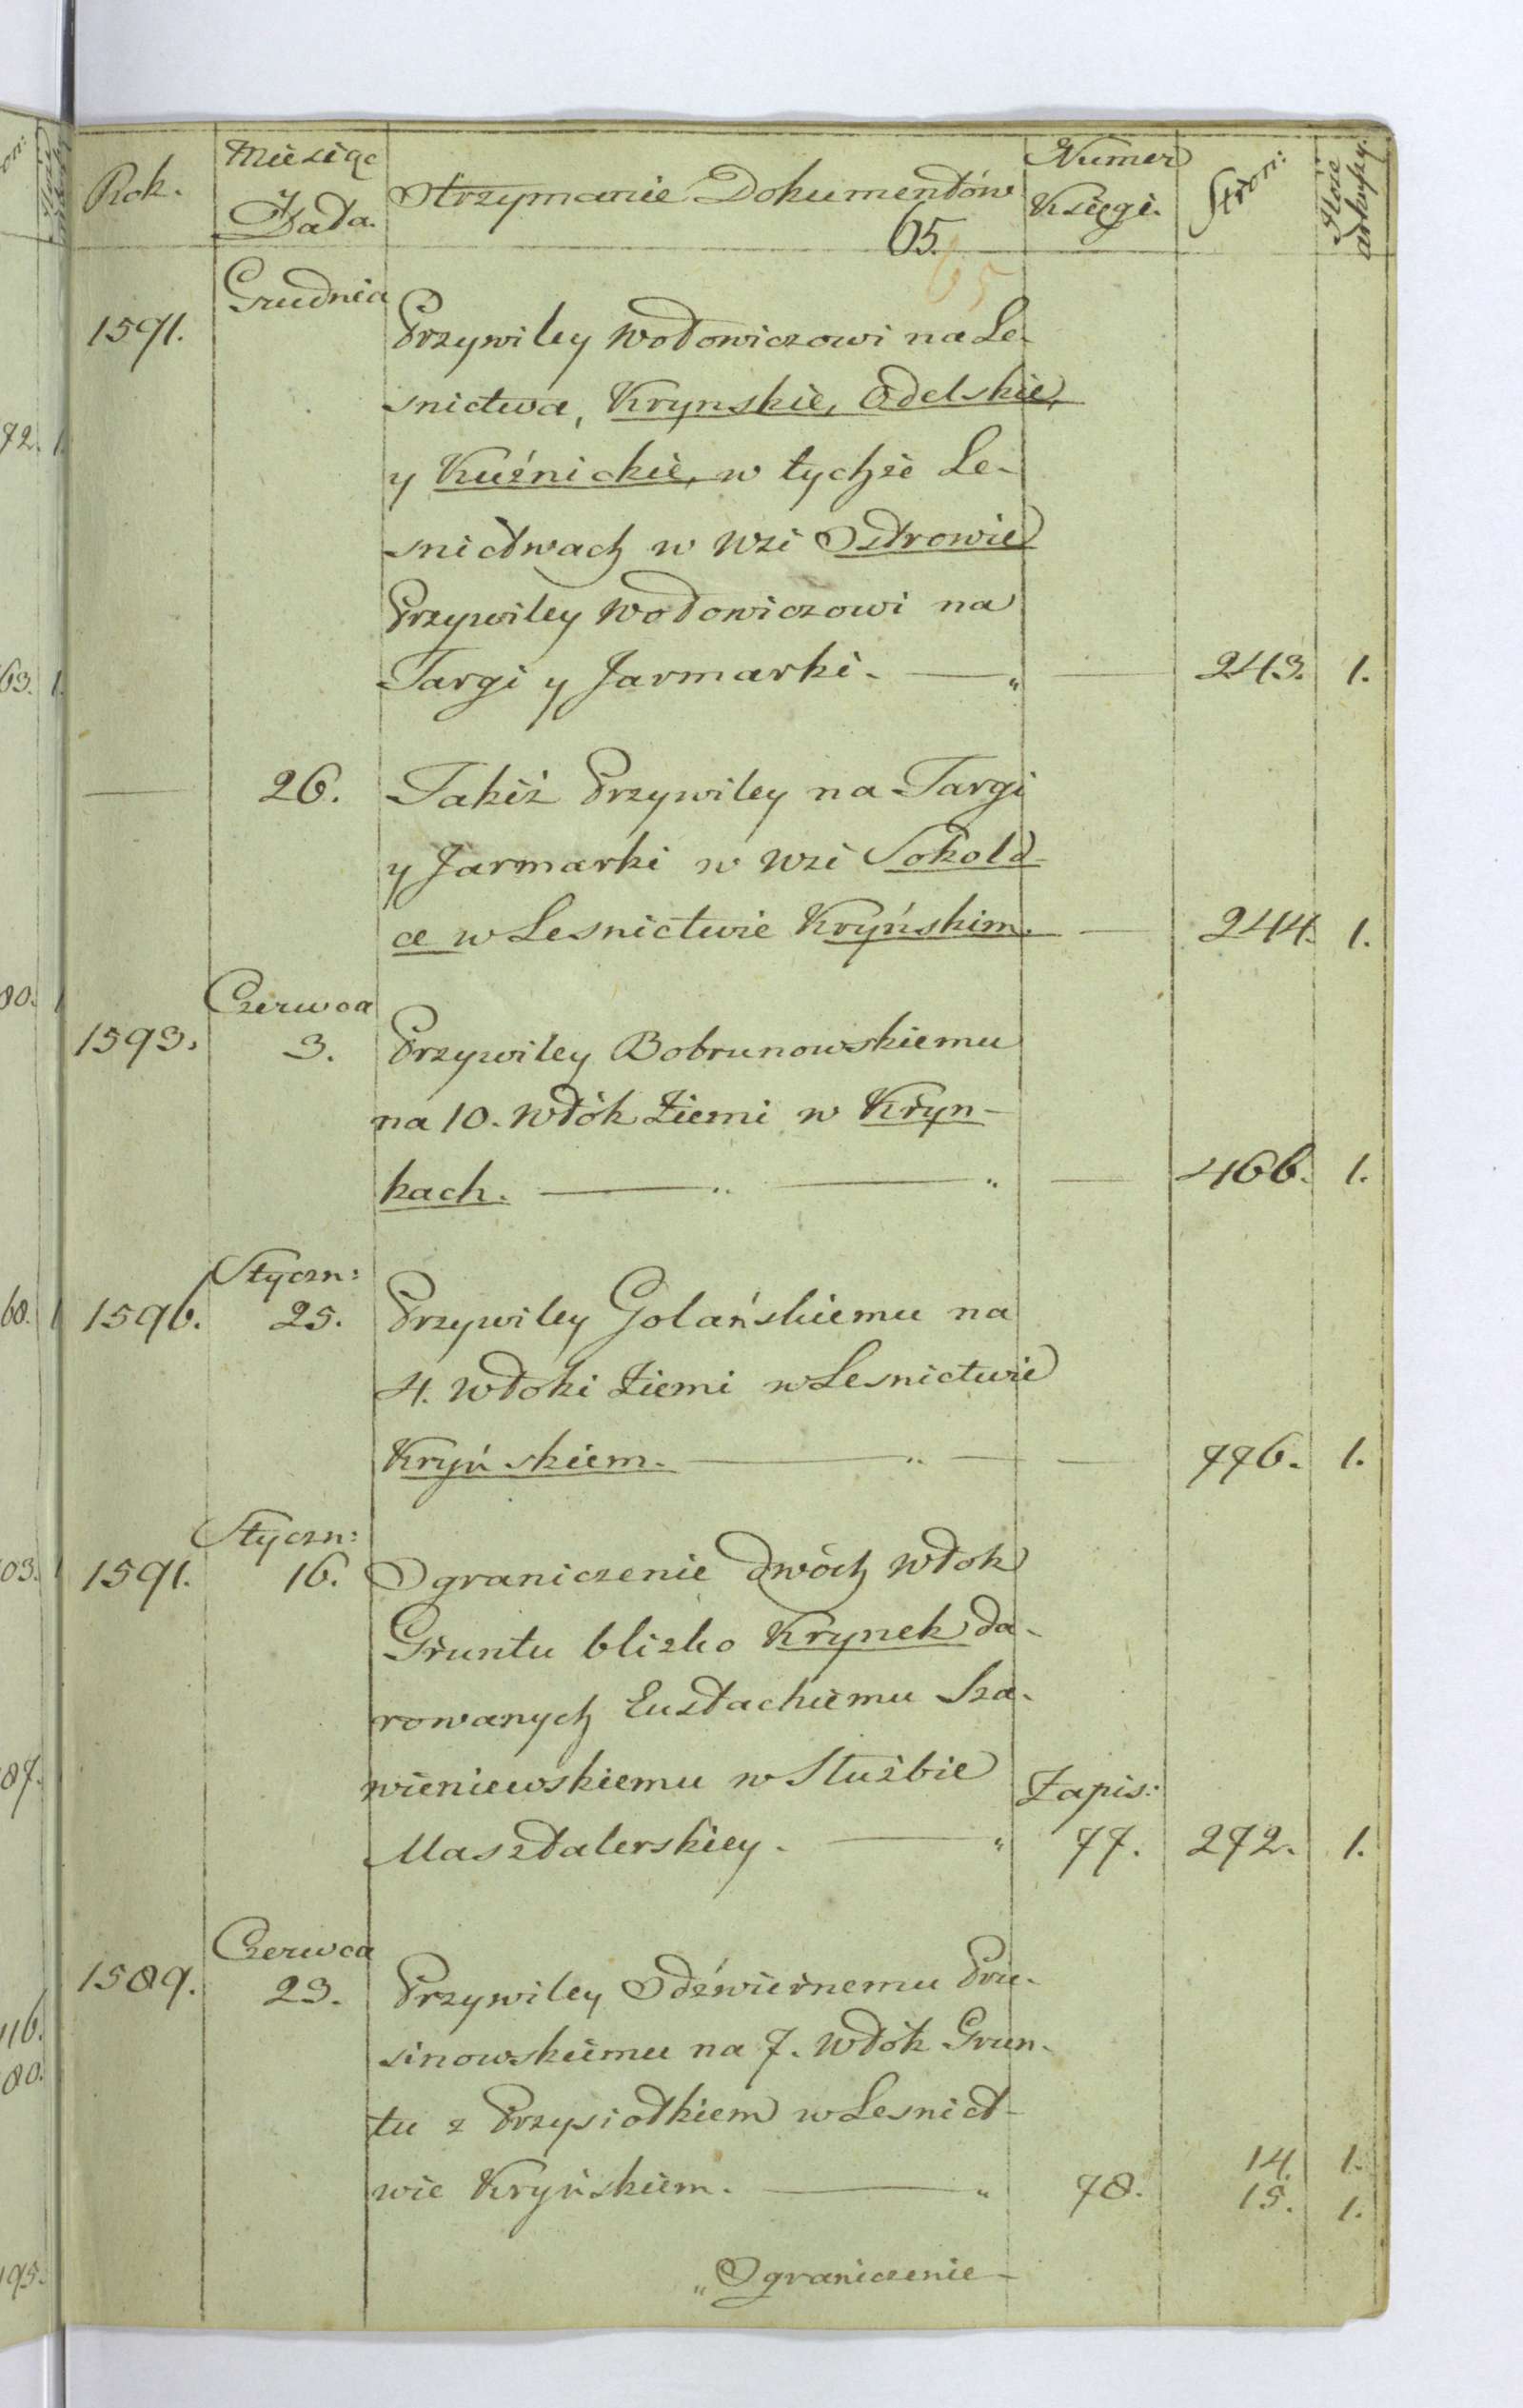 Rok.
Miesiąc
Data.
Otrzymanie Dokumentów
Numer
Księgi.
Stron:
Ilość
arkuszy.
65.
65
Grudnia
1591. Przywiley Wołowiczowi na Le-
snictwa, Krynskie, Odelskie,
y Kuźnickie, w tychże Le-
snictwach w wsi Ostrowie
Przywiley Wołowiczowi na
Targi y Jarmarki. — „ — 243. 1.
— 26. Takiż Przywiley na Targi
y Jarmarki w wsi Sokołd-
ce w Lesnictwie Kryńskim. — 244. 1.
Czerwca
1593. 3. Przywiley Bobrunowskiemu
na 10. Włók Ziemi w Kryn-
kach. — „ — „ — 466. 1.
Styczn:
1596. 25. Przywiley Golańskiemu na
4. Włoki Ziemi w Lesnictwie
Kryńskiem. — „ — — 776. 1.
Styczn:
1591. 16. Ograniczenie dwóch Włok
Gruntu blizko Krynek da-
rowanych Eustachiemu Sza-
wieniewskiemu w Służbie
Zapis:
Masztalerskiey. — „ 77. 272. 1.
Czerwca
1589. 23. Przywiley Odźwiernemu Pru-
sinowskiemu na 7. Włók Grun-
tu z Przysiołkiem w Lesnict-
wie Kryńskiem. — „ 78. 14. 1.
15. 1.
„Ograniczenie